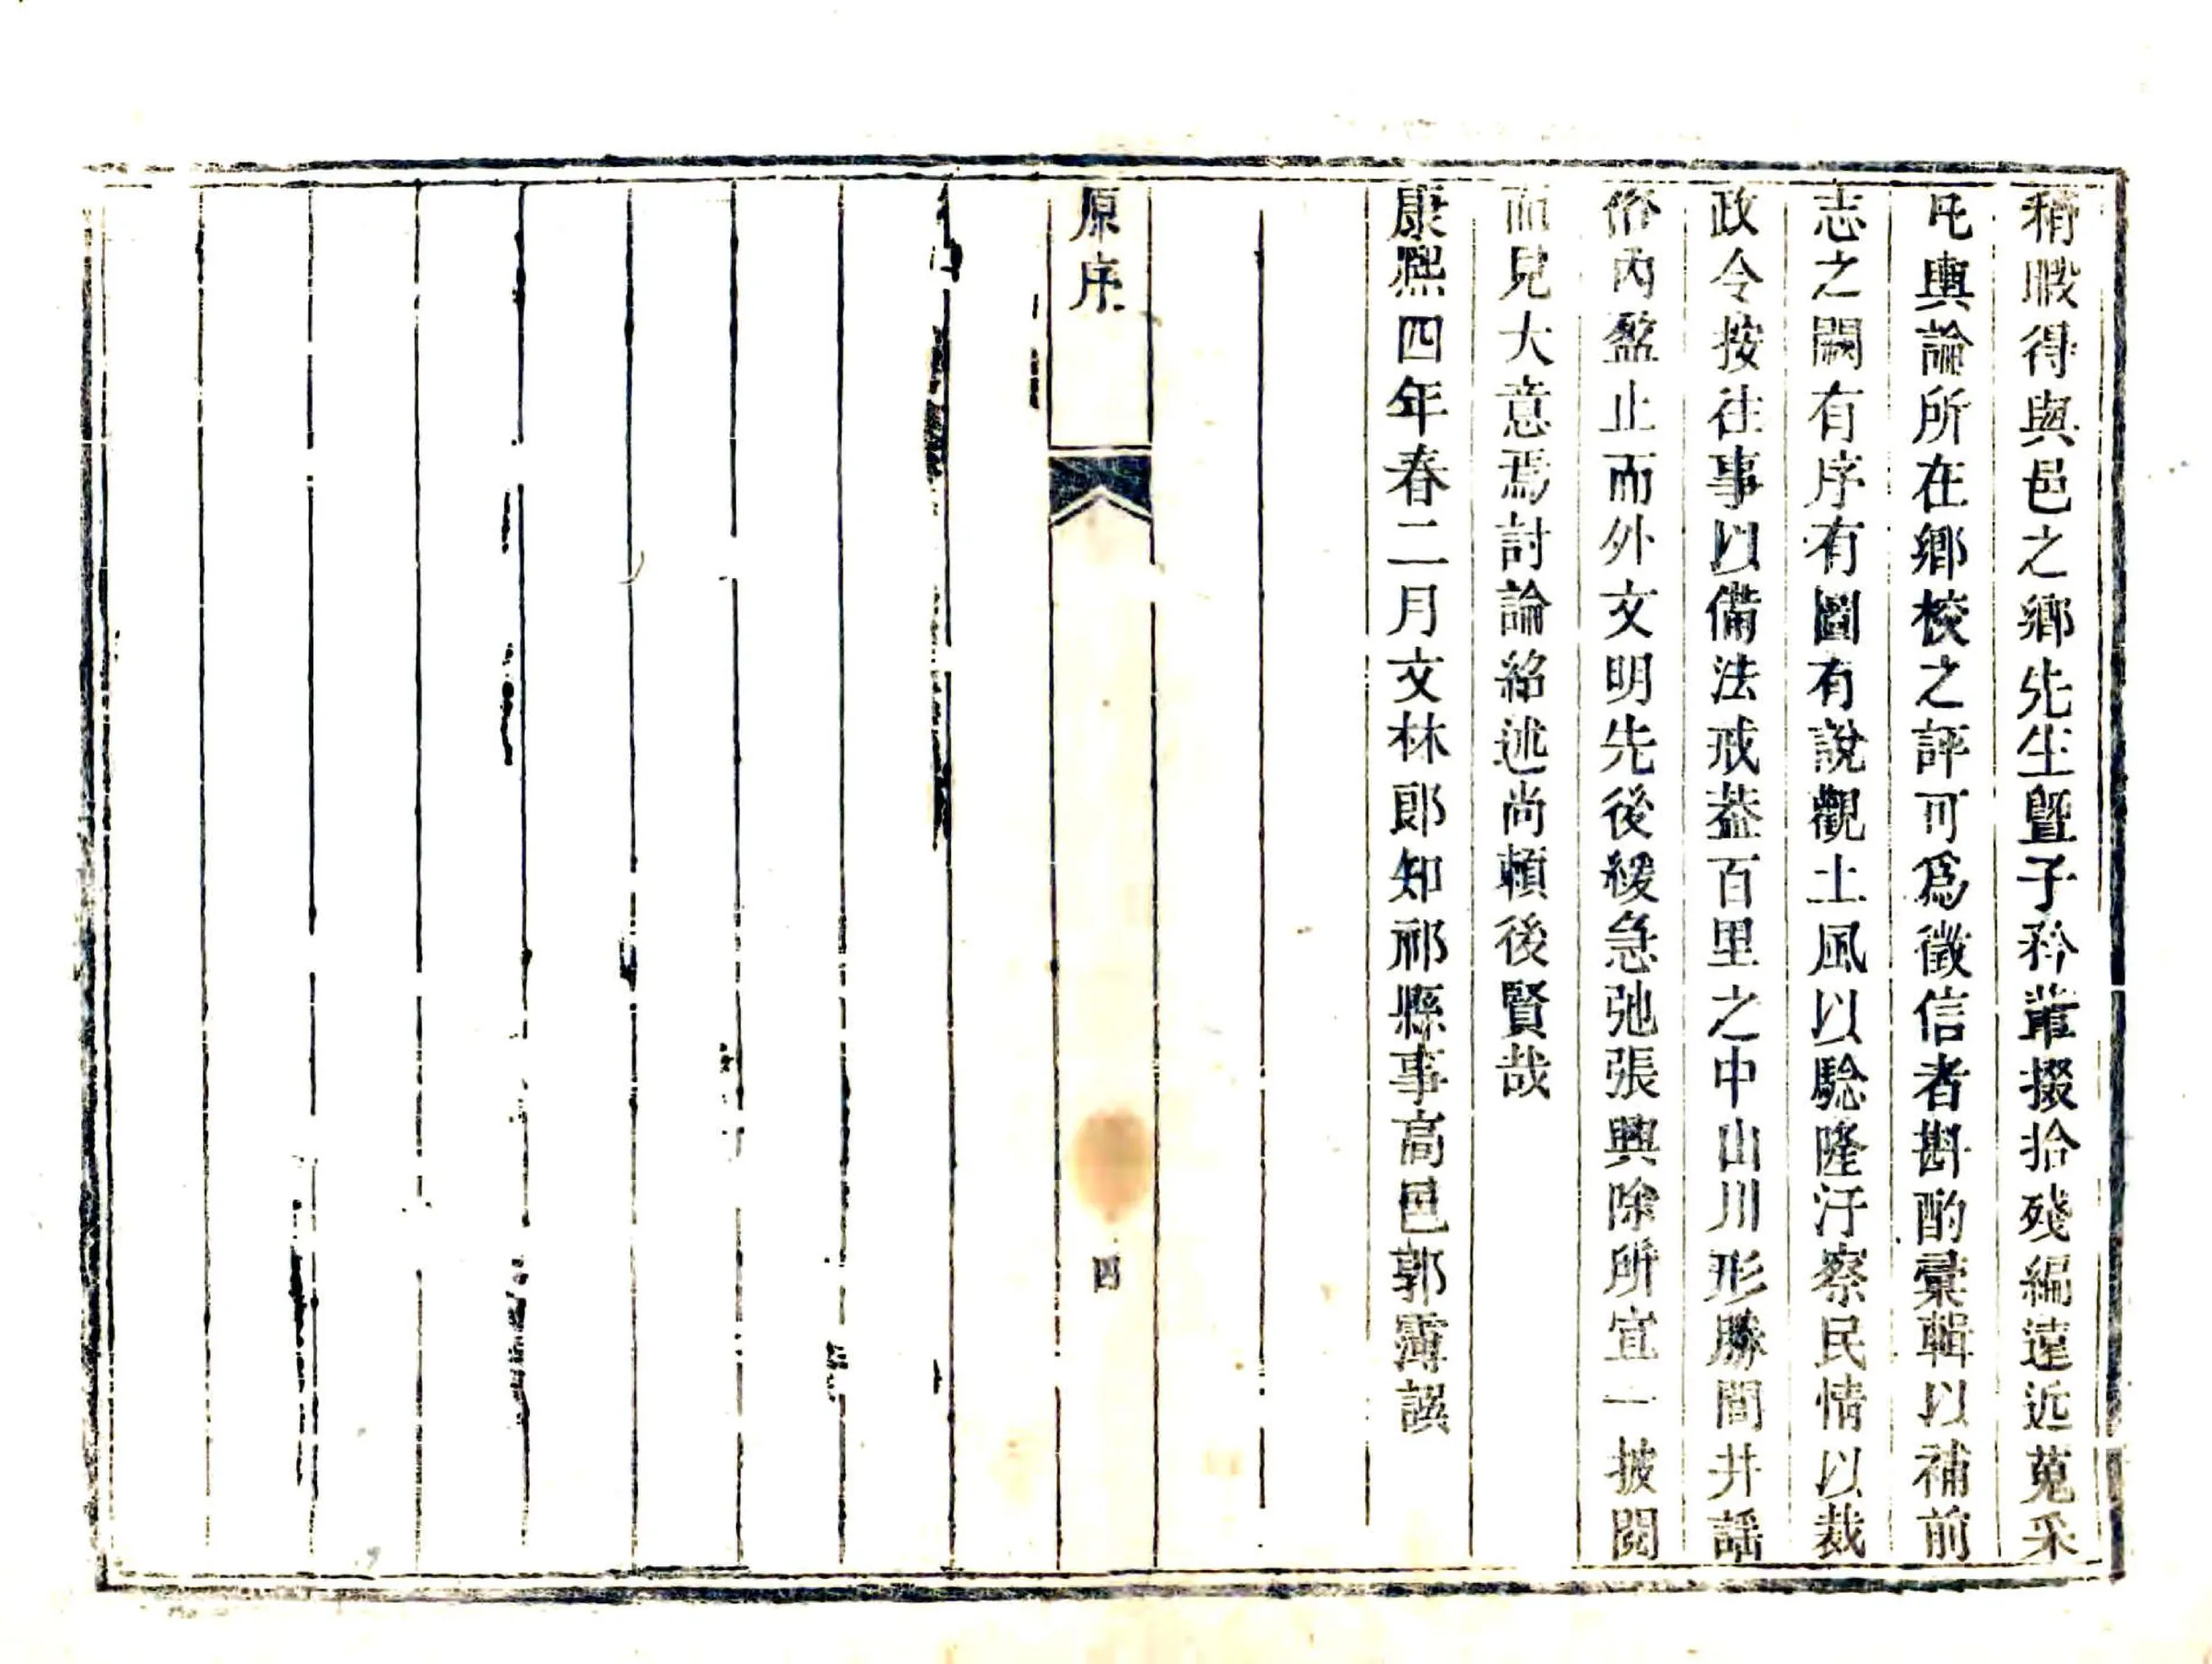 稍暇得與邑之鄉先生曁子衿叢掇拾殘編遠近蒐采
凡輿論所在鄉校之評可爲徵信者斟酌彙輯以補前
志之闕有序有圖有說觀土風以騐隆汙察民情以裁
政令按徃事以備法戒葢百里之中山川形勝閭井謡
俗內盈止而外文明先後緩急弛張興除所宜一披閱
而見大意焉討論紹述尚頼後賢哉
康熈四年春二月文林郞知祁縣事高邑郭霈譔
原序
四